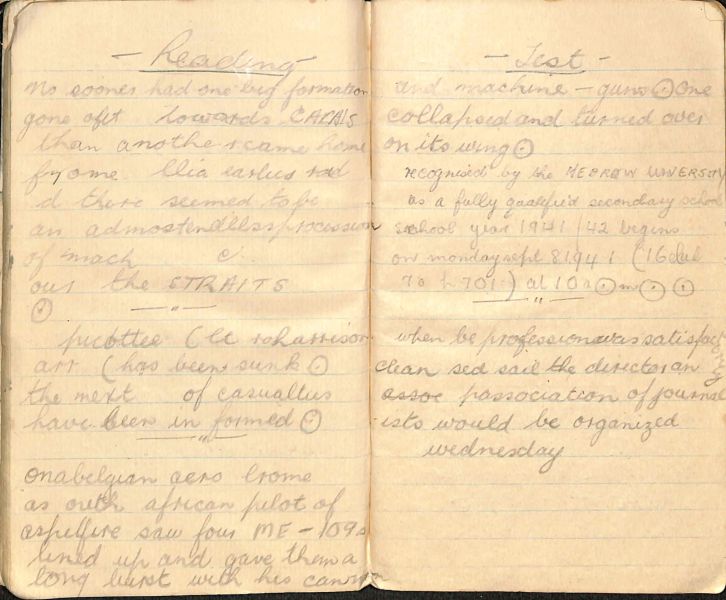 - Reading -
No sooner had one big formation
gone oft towards CALAIS
than anothe r came home
from
d there seemed to be
an admostendless procession
of mach
ous the STRAITS
picottee (
arr (has been sunk ⊙
the next of casualtus
have been in formed ⊙
onabelgian aero drome
as outh african pilot of
aspitfire saw four ME - 109s
lined up and gave them a
long burst with his cannon
- Test -
and machine - guns ⊙ One
collapsed and turned over
on its wing ⊙
recognised by the HEBREW UNIVERSITY
as a fully qualified secondary school
school year 1941/42 begins
on monday sept 8 1941 (16 elul
701) at 10 a ⊙ m ⊙ ⊙
when be profession was satisfact
clean sed said the director an
assoc passociation of journal
ists would be organized
wednesday